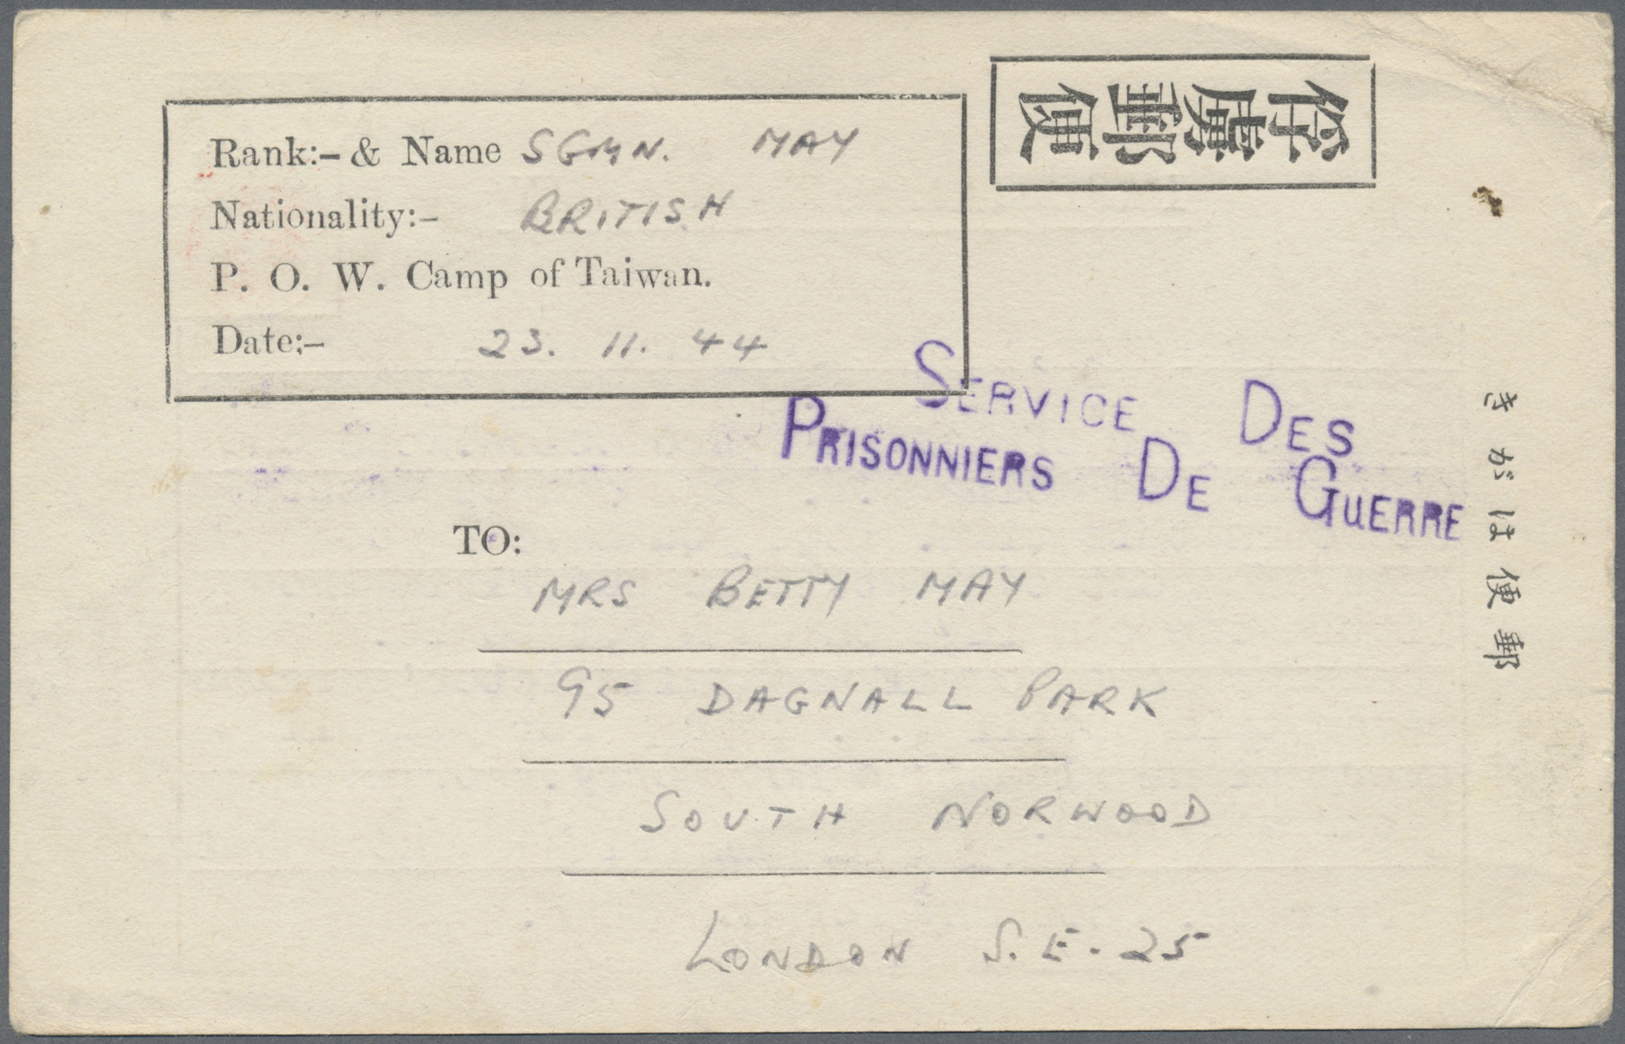 Rank:- & Name SGMN. MAY
Nationality:- BRITISH
P. O. W. Camp of Taiwan.
Date:- 23. 11. 44
俘虜郵便
SERVICE DES
PRISONNIERS DE GUERRE
郵便はがき
TO:
MRS BETTY MAY
95 DAGNALL PARK
SOUTH NORWOOD
LONDON S.E. 25